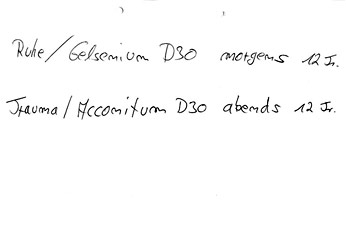 Ruhe/Gelsemium D30 morgens 12 Tr.
Trauma/Acconitum D30 abends 12 Tr.